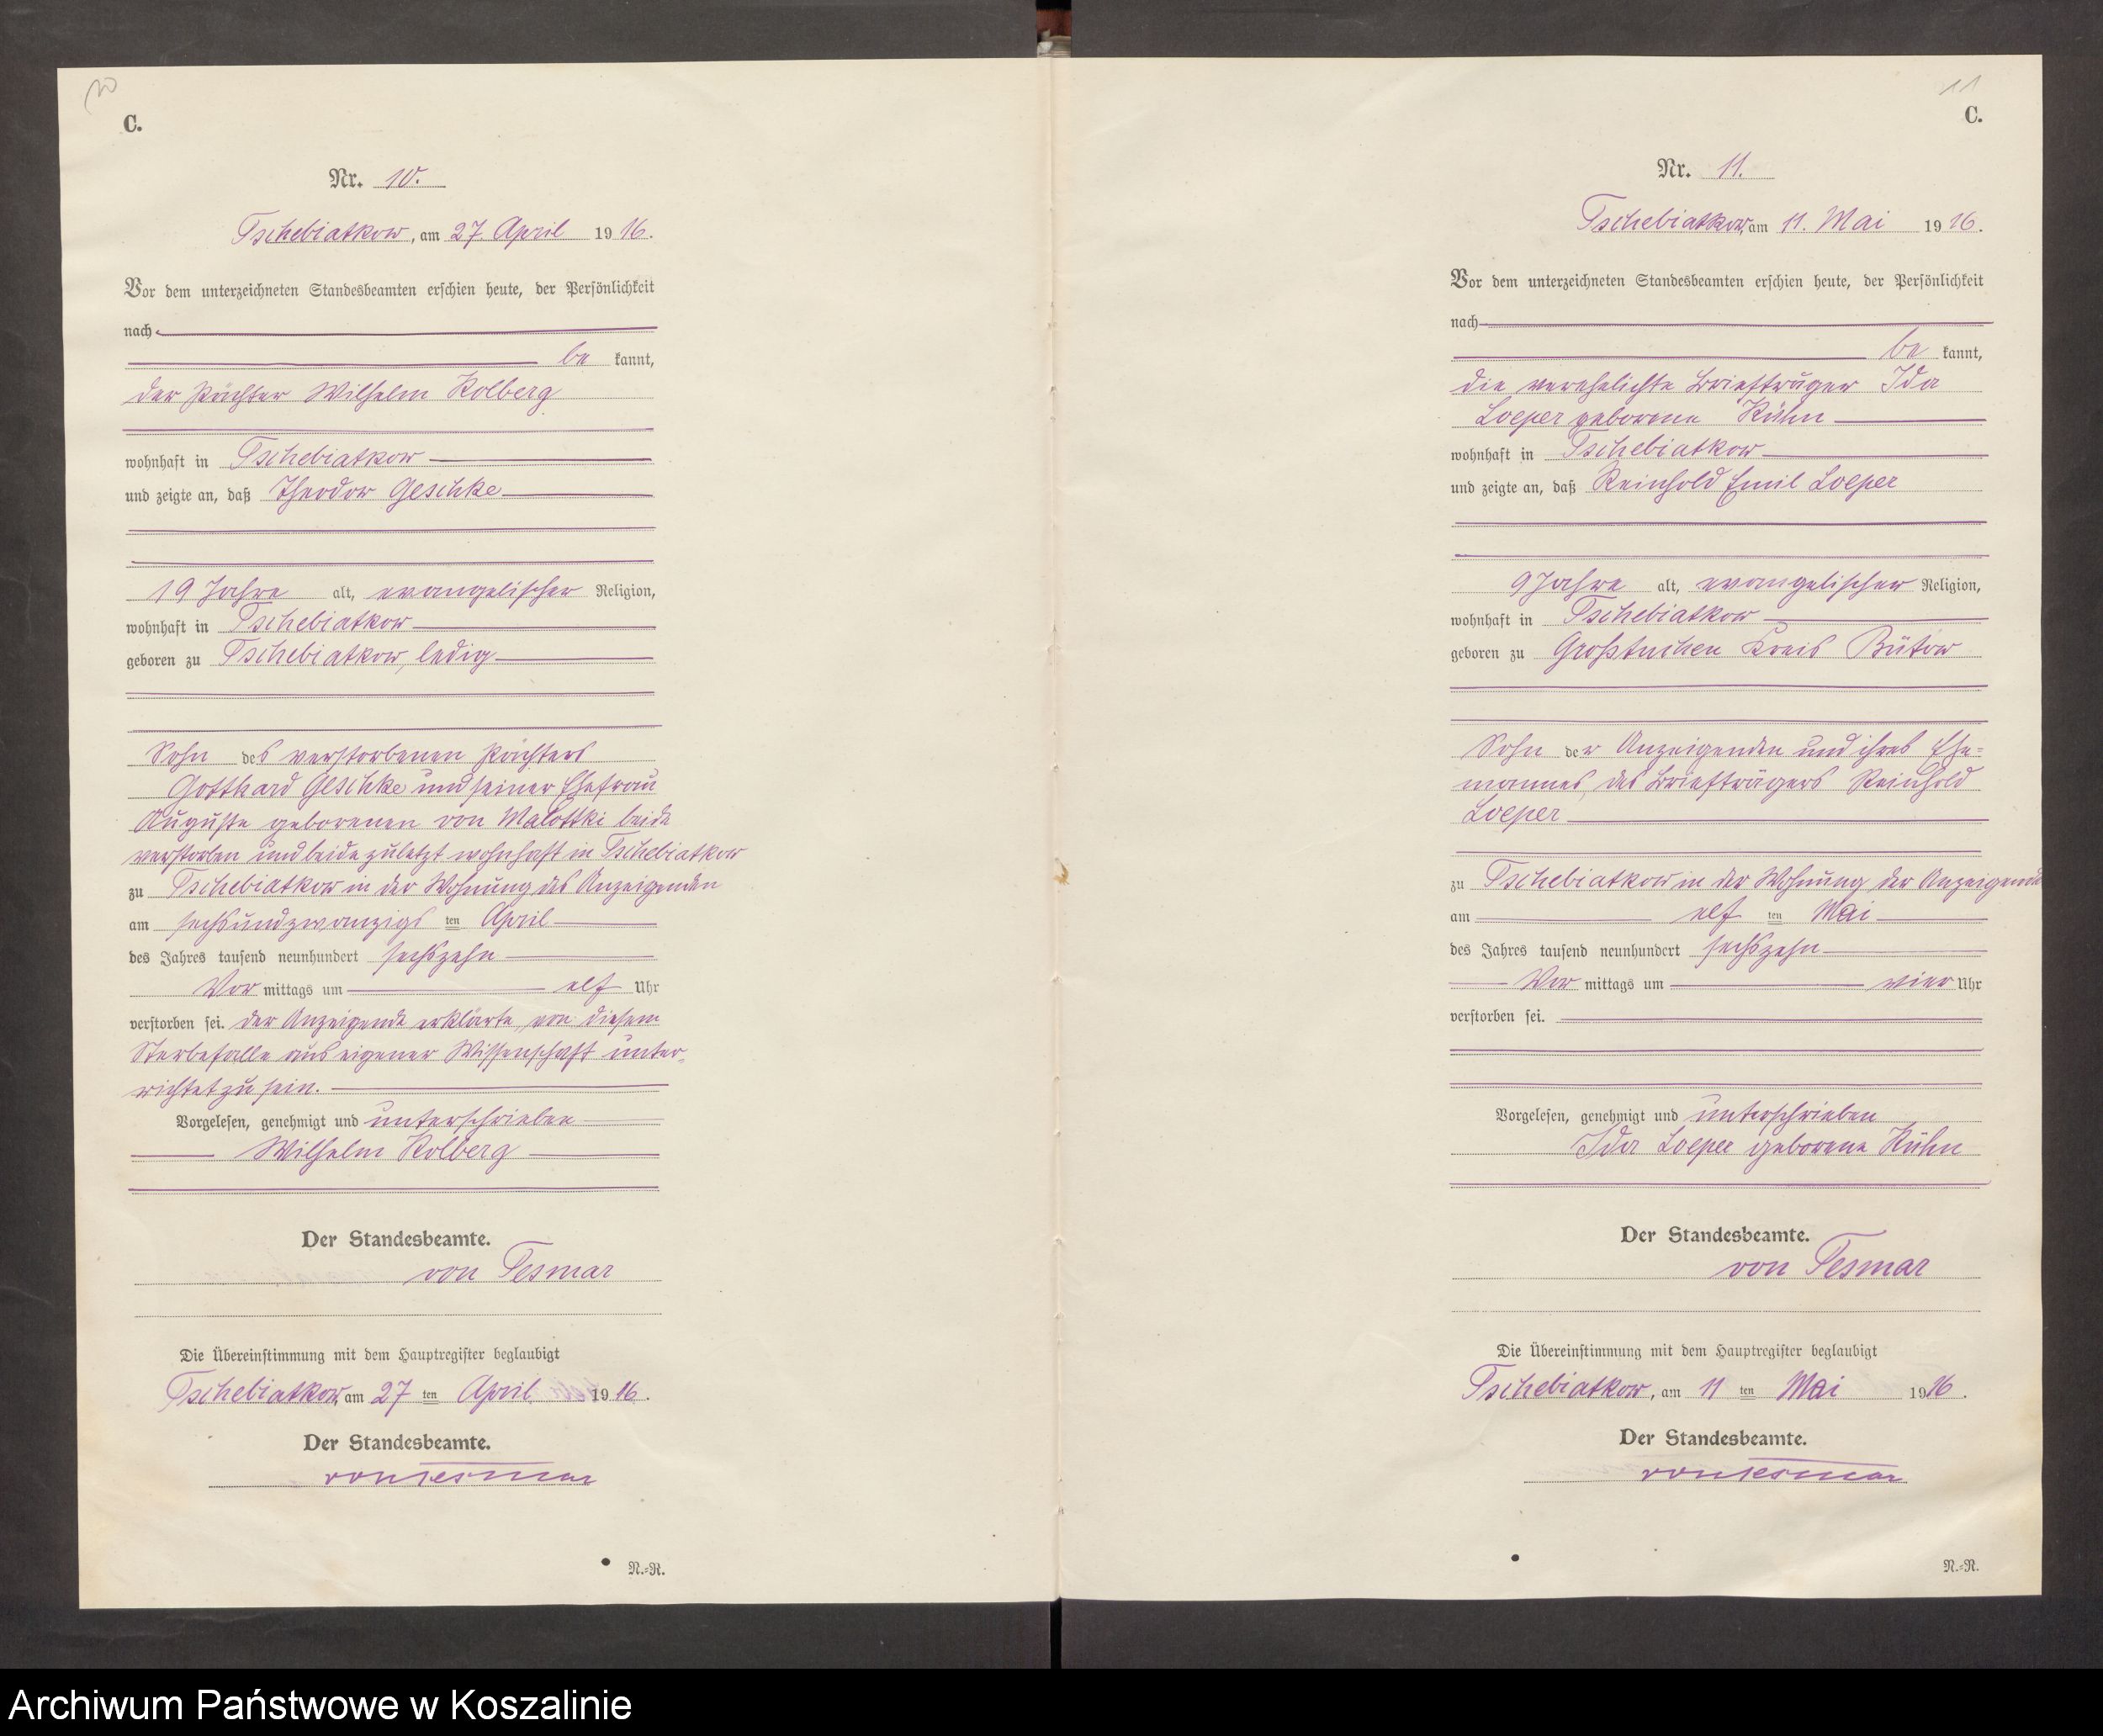 10
C.
Nr. 10.
Tschebiatkow, am 27. April 1916.
Vor dem unterzeichneten Standesbeamten erschien heute, der Persönlichkeit
nach
be kannt,
der Pächter Wilhelm Kolberg
wohnhaft in Tschebiatkow
und zeigte an, daß Theodor Geschke
19 Jahre alt, evangelischer Religion,
wohnhaft in Tschebiatkow
geboren zu Tschebiatkow, ledig
Sohn des verstorbenen Pächters
Gotthard Geschke und seiner Ehefrau
Auguste geborenen von Malottki beide
verstorben und beide zuletzt wohnhaft in Tschebiatkow
zu Tschebiatkow in der Wohnung des Anzeigenden
am sechsundzwanzigs ten April
des Jahres tausend neunhundert sechszehn
Vor mittags um elf Uhr
verstorben sei. Der Anzeigende erklärte, von diesem
Sterbefalle aus eigener Wissenschaft unter-
richtet zu sein.
Vorgelesen, genehmigt und unterschrieben
Wilhelm Kolberg
Der Standesbeamte.
von Tesmar
Die Übereinstimmung mit dem Hauptregister beglaubigt
Tschebiatkow, am 27 ten April 1916.
Der Standesbeamte.
von Tesmar
N.=R.
11
C.
Nr. 11.
Tschebiatkow, am 11. Mai 1916.
Vor dem unterzeichneten Standesbeamten erschien heute, der Persönlichkeit
nach
be kannt,
die verehelichte Briefträger Ida
Loeper geborene Kühn
wohnhaft in Tschebiatkow
und zeigte an, daß Reinhold Emil Loeper
9 Jahre alt, evangelischer Religion,
wohnhaft in Tschebiatkow
geboren zu Großtuchen Kreis Bütow
Sohn der Anzeigenden und ihres Ehe=
mannes, des Briefträgers Reinhold
Loeper
zu Tschebiatkow in der Wohnung der Anzeigende
am elf ten Mai
des Jahres tausend neunhundert sechszehn
Vor mittags um vier Uhr
verstorben sei.
Vorgelesen, genehmigt und unterschrieben
Ida Loeper geborene Kühn
Der Standesbeamte.
von Tesmar
Die Übereinstimmung mit dem Hauptregister beglaubigt
Tschebiatkow, am 11 ten Mai 1916.
Der Standesbeamte.
von Tesmar
N.=R.
Archiwum Państwowe w Koszalinie